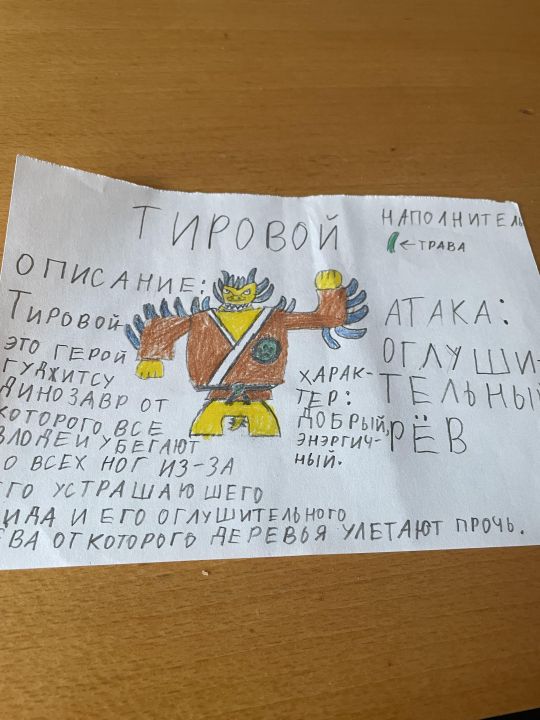 ТИРОВОЙ
НАПОЛНИТЕЛЬ
←ТРАВА
ОПИСАНИЕ:
ТИРОВОЙ
ЭТО ГЕРОЙ
ГУДЖИТСУ
ДИНОЗАВР ОТ
КОТОРОГО ВСЕ
ЗЛОДЕИ УБЕГАЮТ
О ВСЕХ НОГ ИЗ-ЗА
ЕГО УСТРАШАЮШЕГО
ВИДА И ЕГО ОГЛУШИТЕЛЬНОГО
ЕВА ОТ КОТОРОГО ДЕРЕВЬЯ УЛЕТАЮТ ПРОЧЬ.
ХАРАК-
ТЕР:
ДОБРЫЙ,
ЭНЭРГИЧ-
НЫЙ.
АТАКА:
ОГЛУШИ-
ТЕЛЬНЫЙ
РЁВ